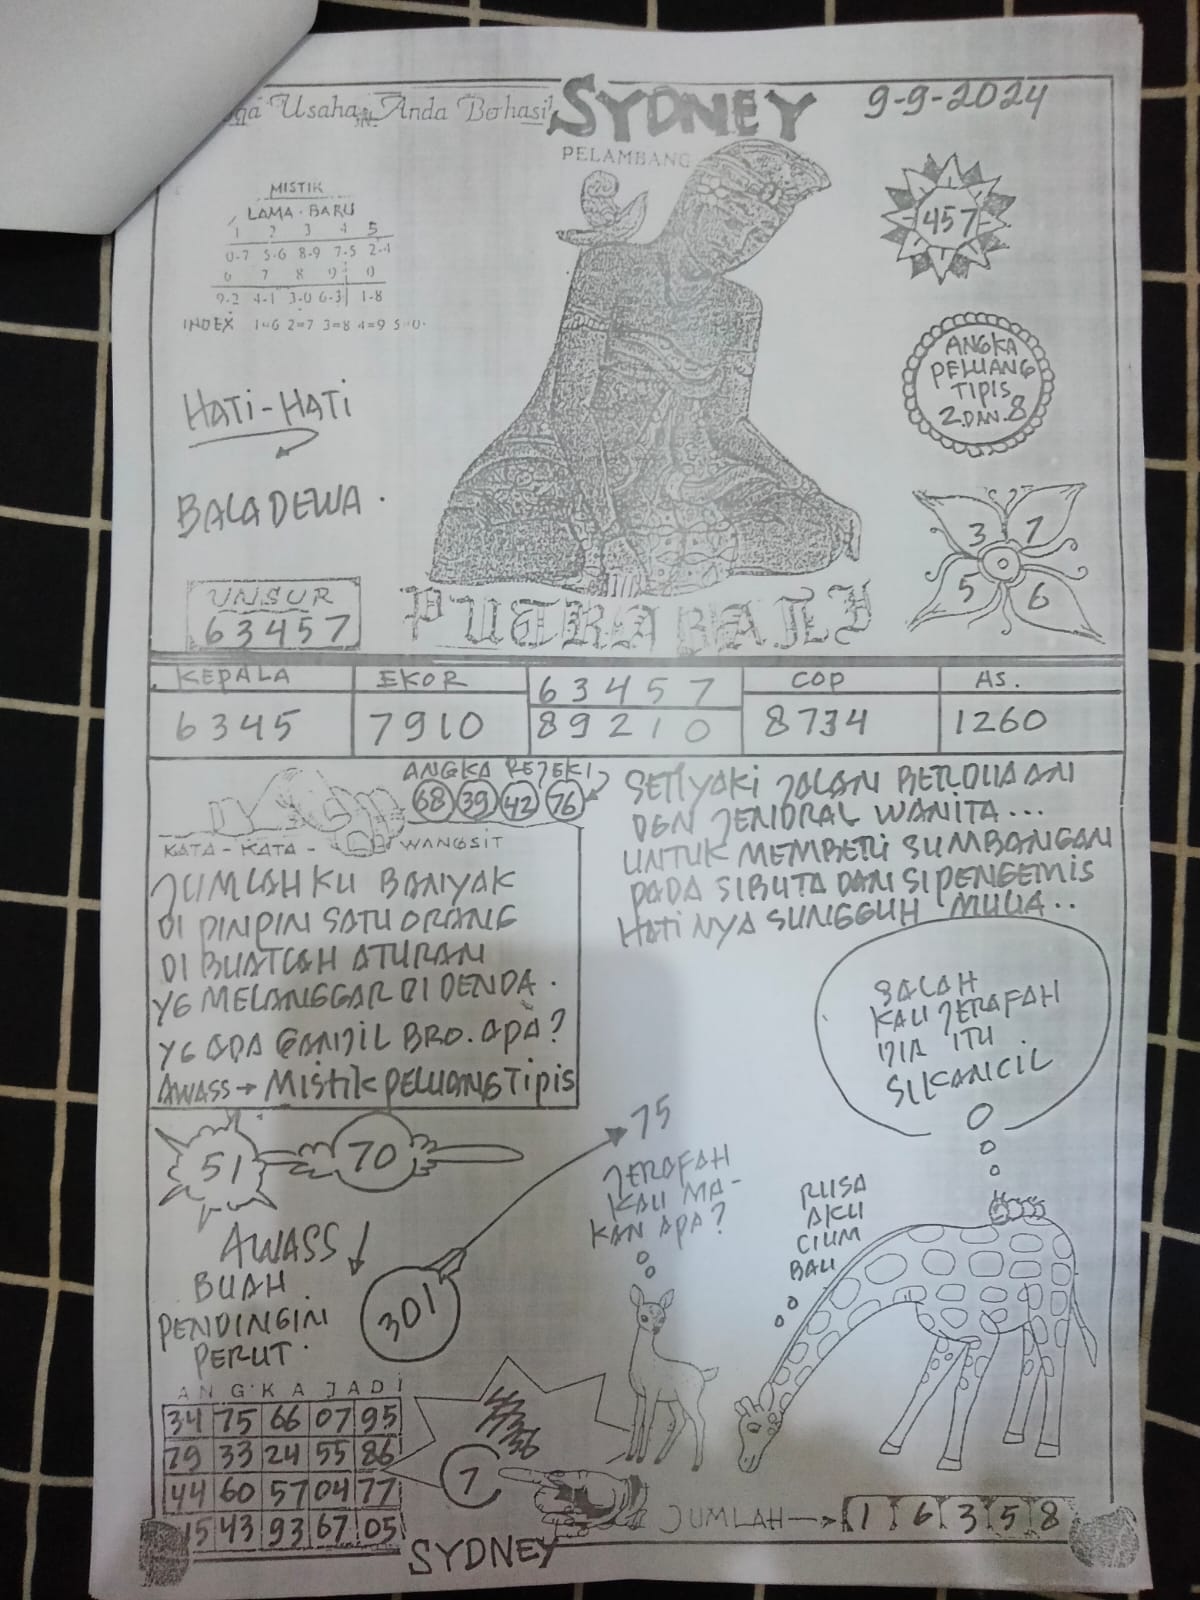 Usaha Anda Berhasil
SYDNEY
9-9-2024
PELAMBANG
MISTIK
LAMA · BARU
1 2 3 4 5
0-7 5-6 8-9 7-5 2-4
6 7 8 9 0
9-2 4-1 3-0 6-3 1-8
INDEX 1=6 2=7 3=8 4=9 5=0
457
ANGKA
PELUANG
TIPIS
2.DAN.8
HATI-HATI
BALADEWA.
3 7
5 6
UNSUR
63457
PUTRA BALI
KEPALA
6345
EKOR
7910
63457
89210
COP
8734
AS.
1260
ANGKA REJEKI
68 39 42 76
KATA-KATA-WANGSIT
JUMLAH KU BANYAK
DI PINPIN SATU ORANG
DI BUATLAH ATURAN
YG MELANGGAR DI DENDA.
YG ADA GANJIL BRO. APA?
AWASS → MISTIK PELUANG TIPIS
SETIYAKI JALAN BERDUAAN
DGN JENDRAL WANITA...
UNTUK MEMBERI SUMBANGAN
PADA SIBUTA DAN SIPENGEMIS
HATI NYA SUNGGUH MULIA..
SALAH
KAU JERAFAH
DIA ITU
SIKANCIL
51
70
75
JERAFAH
KAU MA-
KAN APA?
RUSA
AKU
CIUM
BAU
AWASS
BUAH
PENDINGIN
PERUT.
301
ANGKA JADI
34 75 66 07 95
79 33 24 55 86
44 60 57 04 77
15 43 93 67 05
36
7
JUMLAH → 1 6 3 5 8
SYDNEY